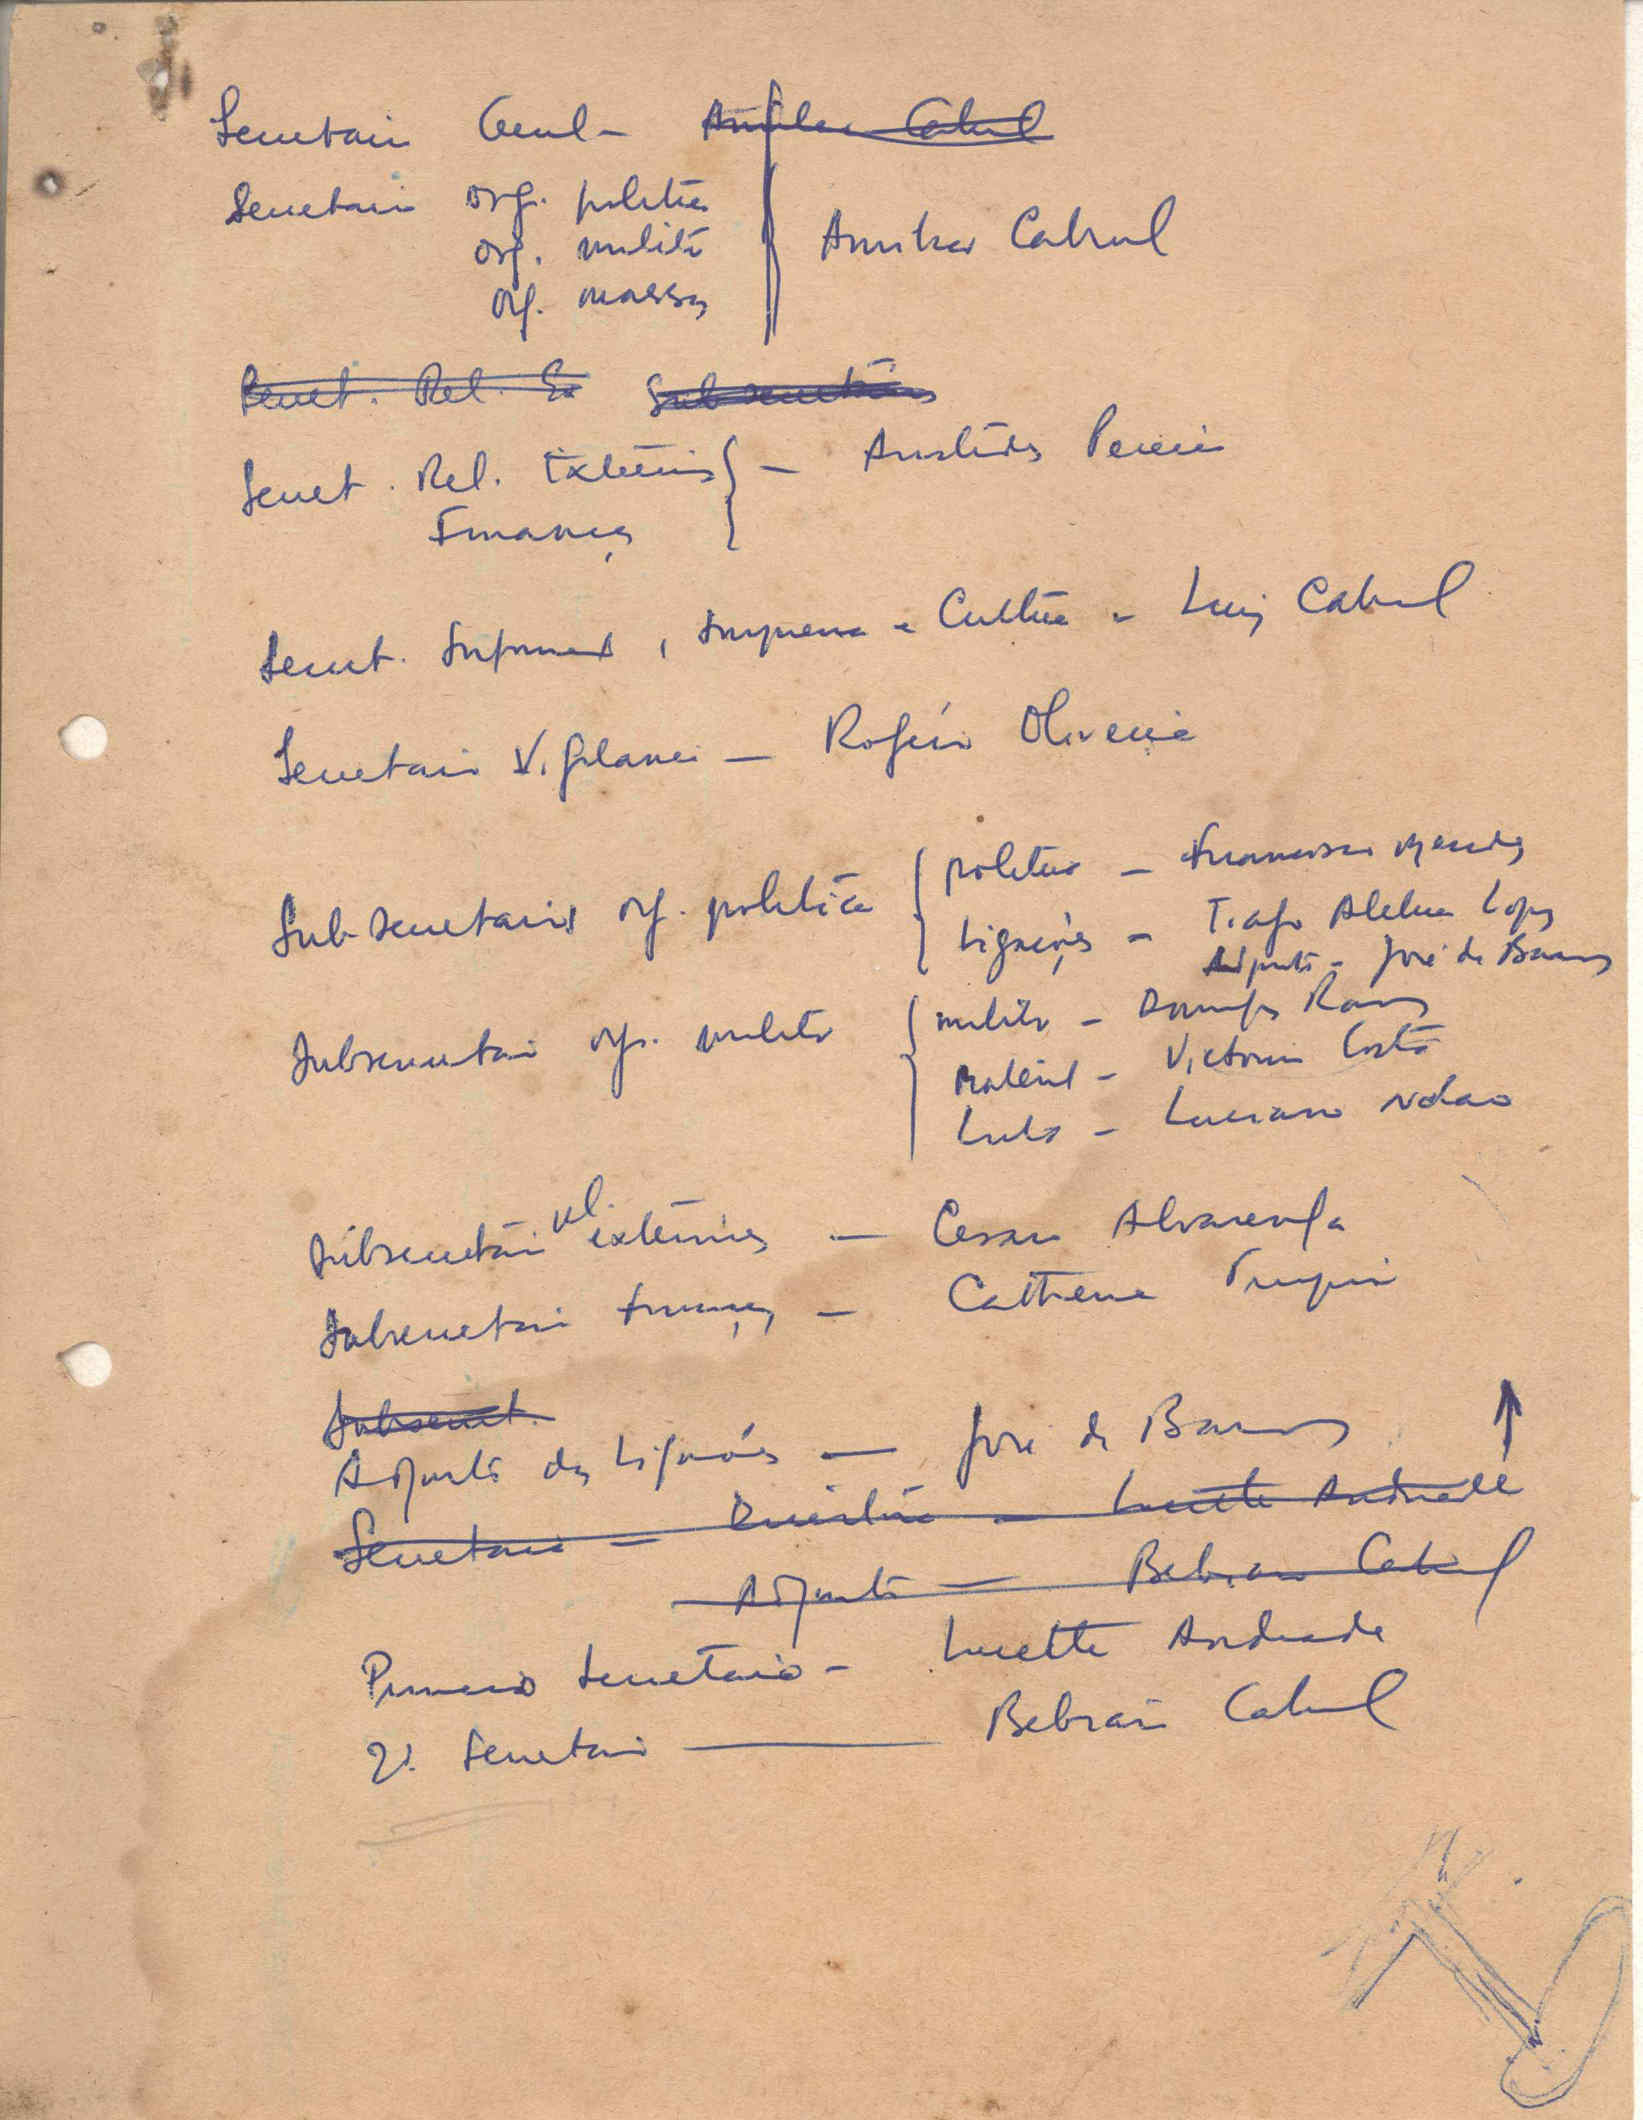 Secretario Geral - Amilcar Cabral
Secretario org. politica
org. militar
org. massas
Amilcar Cabral
Secret. Rel. Ex Subsecretário
Secret. Rel. Extérias - Aristides Pereira
Finanças
Secret. Informaç, Imprensa e Cultura - Luiz Cabral
Secretario Vigilancia - Rogério Oliveira
Subsecretarios org. politica politica - Francisco Mendes
Ligações - Tiago Aleluia Lopes
Adjunto - José de Barros
Subsecretario org. militar militar - Domingos Ramos
Material - Victorino Costa
Luta - Luciano Ndao
Subsecretário rel. extérnias - Cesar Alvarenga
Subsecretario Finanças - Catherine
Subsecret.
Adjunto das Ligações - José de Barros
Secretaria - - Lucette Andrade
Adjunto - Bebiano Cabral
Primeiro Secretario - Lucette Andrade
2º. Secretario - Bebiano Cabral